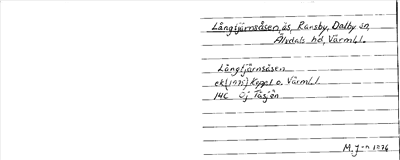 Långtjärnsåsen, ås, Ransby, Dalby sn,
Älvdals hd, Värml.l.
Långtjärnsåsen
ek (1975) Koppl.o. Värml.l.
14C Ej Tåsjön
M. J-n 1976